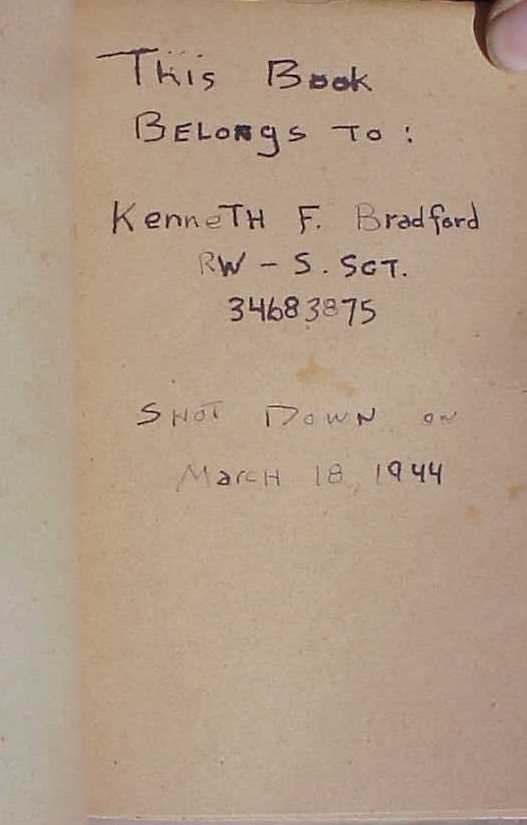 This Book
BELongs To:
KenneTH F. Bradford
RW - S. SGT.
34683875
SHOT DOWN on
MarcH 18, 1944